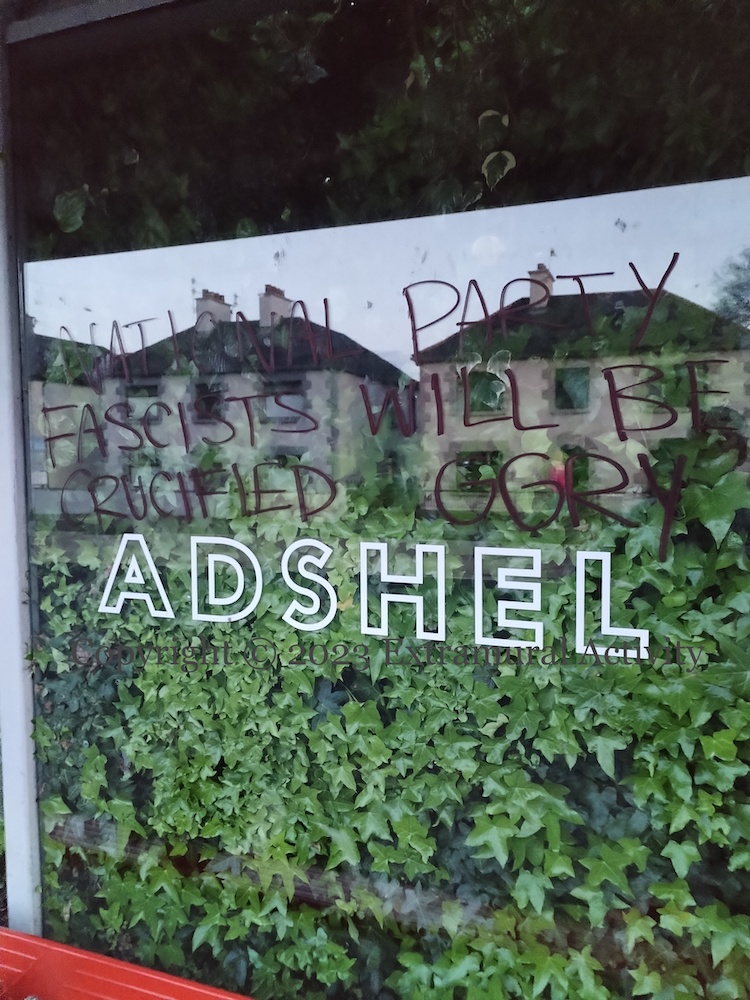 NATIONAL PARTY
FASCISTS WILL BE
CRUCIFIED GGRY
ADSHEL
Copyright © 2023 Extramural Activity